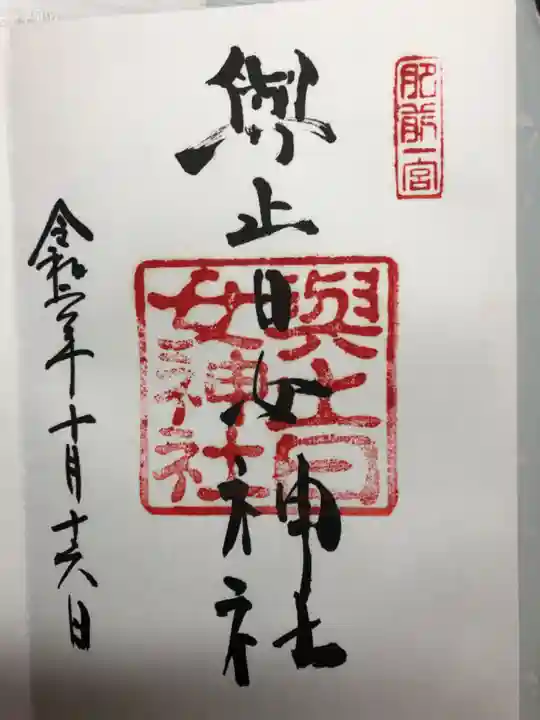 肥前一宮
與止日女神社
與止日
女神社
令和二年十月十六日